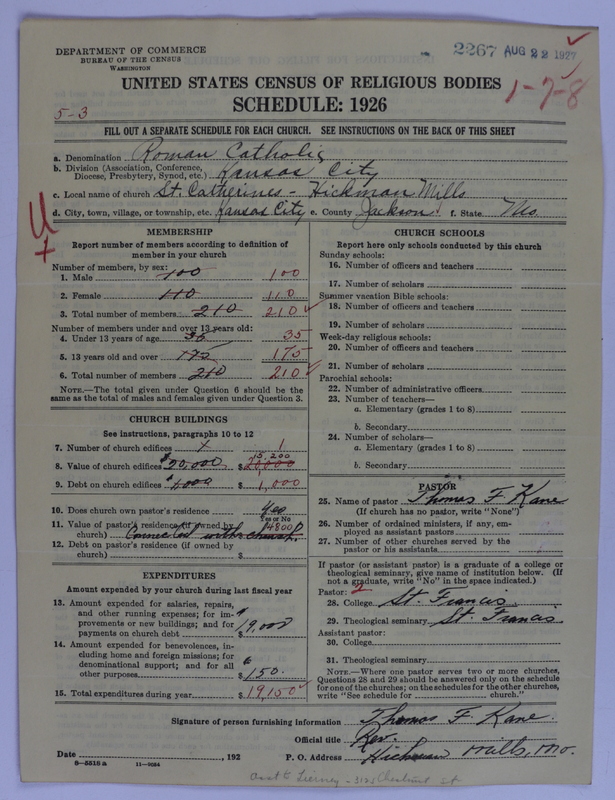 DEPARTMENT OF COMMERCE
BUREAU OF THE CENSUS
WASHINGTON
2267 AUG 22 1927
UNITED STATES CENSUS OF RELIGIOUS BODIES
SCHEDULE: 1926
1-7-8
5-3
FILL OUT A SEPARATE SCHEDULE FOR EACH CHURCH. SEE INSTRUCTIONS ON THE BACK OF THIS SHEET
a. Denomination Roman Catholic
b. Division (Association, Conference, Diocese, Presbytery, Synod, etc.) Kansas City
c. Local name of church St. Catherines - Hickman Mills
d. City, town, village, or township, etc. Kansas City e. County Jackson f. State Mo.
MEMBERSHIP
Report number of members according to definition of
member in your church
Number of members, by sex:
1. Male 100 100
2. Female 110 110
3. Total number of members 210 210
Number of members under and over 13 years old:
4. Under 13 years of age 35 35
5. 13 years old and over 175 175
6. Total number of members 210 210
NOTE.—The total given under Question 6 should be the
same as the total of males and females given under Question 3.
CHURCH BUILDINGS
See instructions, paragraphs 10 to 12
7. Number of church edifices 1 1
8. Value of church edifices $20,000 $ 20000 15,200
9. Debt on church edifices $1,000 $ 1,000
10. Does church own pastor's residence Yes
Yes or No
11. Value of pastor's residence (if owned by
church) Connected with church. $ 4800
12. Debt on pastor's residence (if owned by
church) $
EXPENDITURES
Amount expended by your church during last fiscal year
13. Amount expended for salaries, repairs,
and other running expenses; for im-
provements or new buildings; and for
payments on church debt $ 19,000
14. Amount expended for benevolences, in-
cluding home and foreign missions; for
denominational support; and for all
other purposes $ 150.
15. Total expenditures during year $ 19150
CHURCH SCHOOLS
Report here only schools conducted by this church
Sunday schools:
16. Number of officers and teachers
17. Number of scholars
Summer vacation Bible schools:
18. Number of officers and teachers
19. Number of scholars
Week-day religious schools:
20. Number of officers and teachers
21. Number of scholars
Parochial schools:
22. Number of administrative officers
23. Number of teachers—
a. Elementary (grades 1 to 8)
b. Secondary
24. Number of scholars—
a. Elementary (grades 1 to 8)
b. Secondary
PASTOR
25. Name of pastor Thomas F Kane
(If church has no pastor, write "None")
26. Number of ordained ministers, if any, em-
ployed as assistant pastors
27. Number of other churches served by the
pastor or his assistants
If pastor (or assistant pastor) is a graduate of a college or
theological seminary, give name of institution below. (If
not a graduate, write "No" in the space indicated.)
Pastor: 2
28. College St. Francis
29. Theological seminary St. Francis
Assistant pastor:
30. College
31. Theological seminary
NOTE.—Where one pastor serves two or more churches,
Questions 28 and 29 should be answered only on the schedule
for one of the churches; on the schedules for the other churches,
write "See schedule for ............ church."
Signature of person furnishing information Thomas F. Kane.
Official title Rev.
Date , 192 P. O. Address Hickman Mills, Mo.
8-5516 a 11-9064
Tierney - 3125 Chestnut st